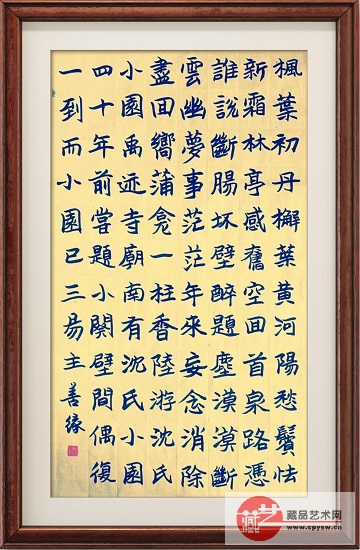 楓葉初丹檞葉黃河陽愁鬢怯
新霜林亭感舊空回首泉路憑
誰說斷腸坏壁醉題塵漠漠斷
雲幽夢事茫茫年來妄念消除
盡回嚮蒲龕一柱香陸游沈氏
小園禹迹寺廟南有沈氏小園
四十年前嘗題小闋壁間偶復
一到而小園已三易主善緣
藏艺
藏品艺术网
www.cpysw.cn